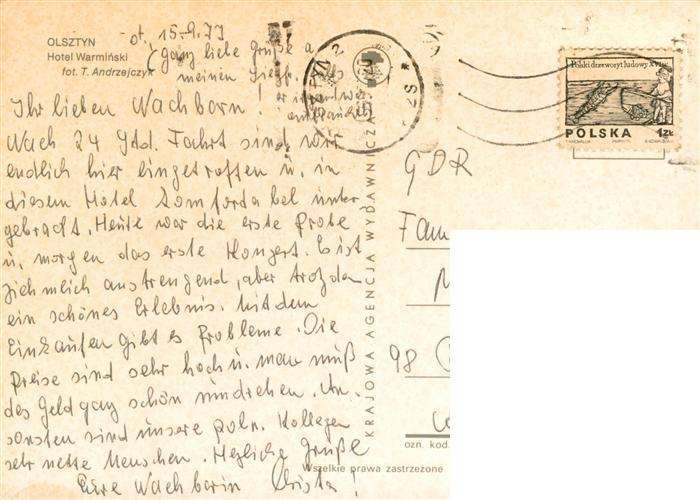 OLSZTYN
Hotel Warmiński
fot. T. Andrzejczyk
d. 15.9.77
(ganz liebe Grüße a
meinen
Ihr lieben Nachbarn!
Nach 24 Std. Fahrt sind wir
endlich hier eingetroffen u. in
diesem Hotel komfortabel unter
gebracht. Heute war die erste Probe
u. morgen das erste Konzert. Es ist
ziehmlich anstrengend, aber trotzdem
ein schönes Erlebnis. Mit dem
Einkaufen gibt es Probleme. Die
Preise sind sehr hoch u. man muß
das Geld ganz schön umdrehen. An-
sonsten sind unsere poln. Kollegen
sehr nette Menschen. Herzliche Grüße
Eure Nachbarin Christa!
KRAJOWA AGENCJA WYDAWNICZA
Polski drzeworyt ludowy XVI w.
POLSKA 1zł
GDR
Fam
98
ozn. kod.
Wszelkie prawa zastrzeżone